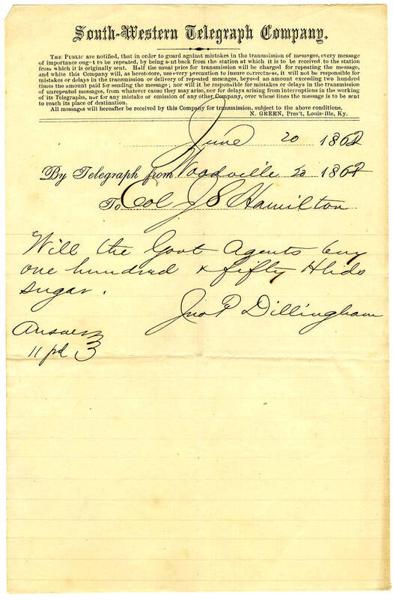 South-Western Telegraph Company.
THE PUBLIC are notified, that in order to guard against mistakes in the transmission of messages, every message
of importance ought to be repeated, by being sent back from the station at which it is to be received to the station
from which it is originally sent. Half the usual price for transmission will be charged for repeating the message,
and while this Company will, as heretofore, use every precaution to insure correctness, it will not be responsible for
mistakes or delays in the transmission or delivery of repeated messages, beyond an amount exceeding two hundred
times the amount paid for sending the message; nor will it be responsible for mistakes or delays in the transmission
of unrepeated messages, from whatever cause they may arise, nor for delays arising from interruptions in the working
of its Telegraphs, nor for any mistake or omission of any other Company, over whose lines the message is to be sent
to reach its place of destination.
All messages will hereafter be received by this Company for transmission, subject to the above conditions.
N. GREEN, Pres't, Louisville, Ky.
June 20 1862
By Telegraph from Woodville 20 1862
To Col J S Hamilton
Will the Govt Agents buy
one hundred & fifty Hhds
sugar.
Jno P Dillingham
Answer
11 pd